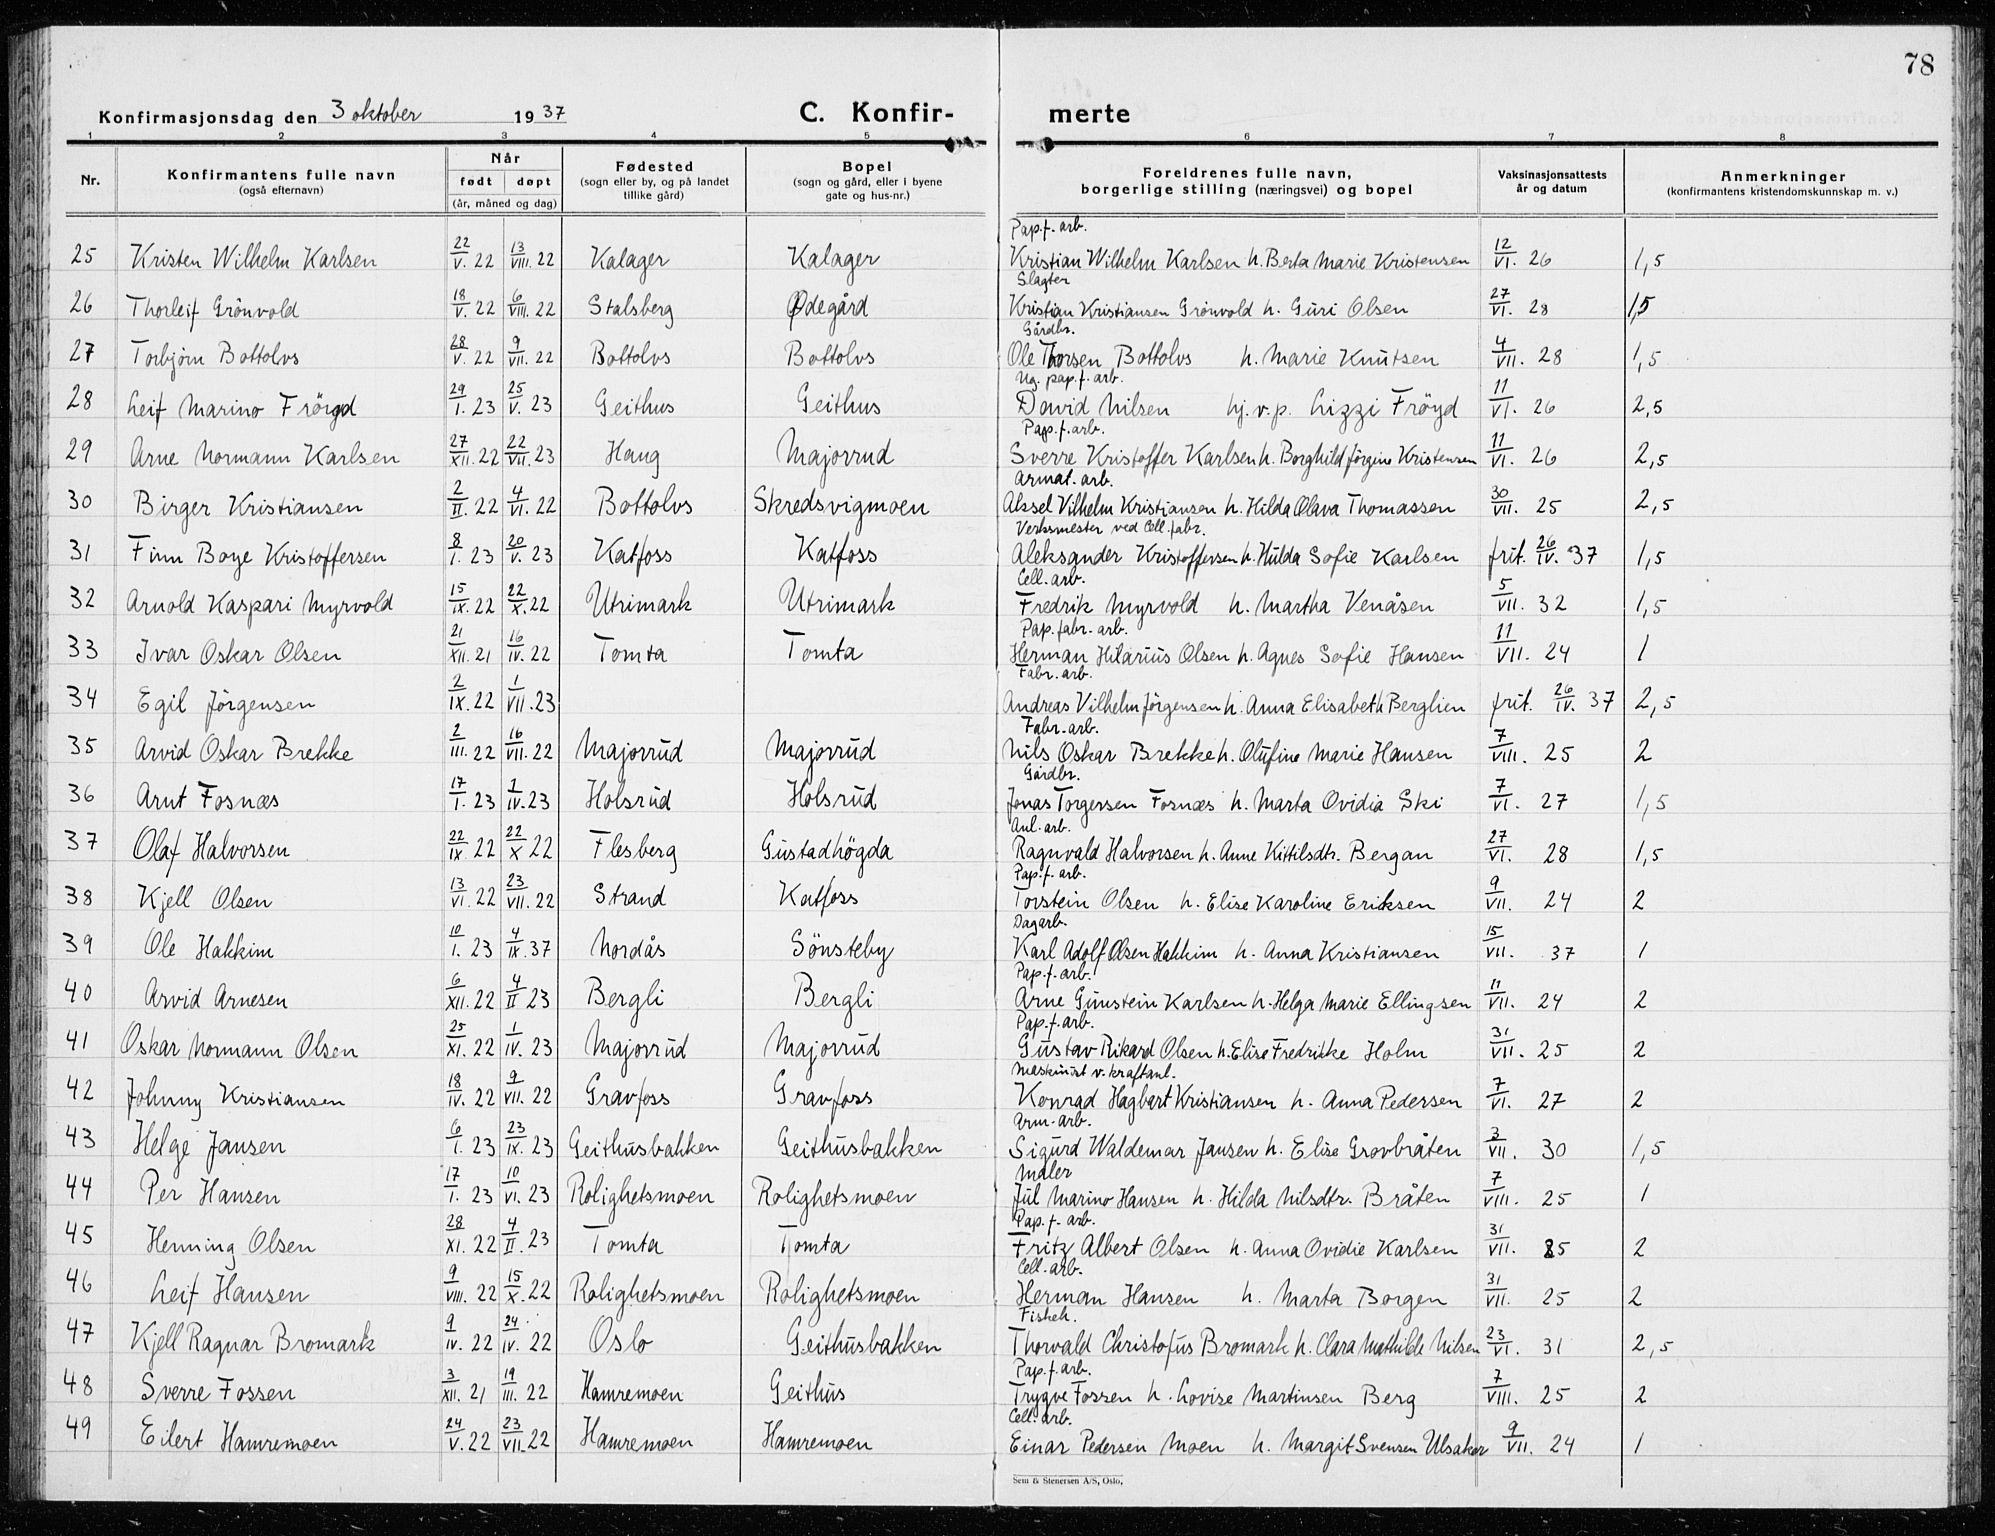 78
Konfirmasjonsdag den 3 oktober 1937 C. Konfir- merte
1 2 3 4 5 6 7 8
Nr. Konfirmantens fulle navn (også efternavn) Når født døpt (år, måned og dag) Fødested (sogn eller by, og på landet tillike gård) Bopel (sogn og gård, eller i byene gate og hus-nr.) Foreldrenes fulle navn, borgerlige stilling (næringsvei) og bopel Vaksinasjonsattests år og datum Anmerkninger (konfirmantens kristendomskunnskap m. v.)
Pap.f. arb.
25 Kristen Wilhelm Karlsen 22/V. 22 13/VIII. 22 Kalager Kalager Kristian Wilhelm Karlsen h. Berta Marie Kristensen 12/VI. 26 1,5
Slagter
26 Thorleif Grönvold 18/V. 22 6/VIII. 22 Stalsberg Ødegård Kristian Kristiansen Grönvold h. Guri Olsen 27/VI. 28 1,5
Gårdbr.
27 Torbjörn Bottolvs 28/V. 22 9/VII. 22 Bottolvs Bottolvs Ole Thorsen Bottolvs h. Marie Knutsen 4/VII. 28 1,5
Ug. pap.f. arb.
28 Leif Marino Fröyd 29/I. 23 25/V. 23 Geithus Geithus David Nilsen hj.v.p. Lizzi Fröyd 11/VI. 26 2,5
Pap.f. arb.
29 Arne Normann Karlsen 27/XII. 22 22/VII. 23 Haug Majorrud Sverre Kristoffer Karlsen h. Borghild Jörgine Kristensen 11/VI. 26 2,5
Armat. arb.
30 Birger Kristiansen 2/II. 22 4/VI. 22 Bottolvs Skredsvigmoen Aksel Vilhelm Kristiansen h. Hilda Olava Thomassen 30/VII. 25 2,5
Verksmester ved Cell. fabr.
31 Finn Boye Kristoffersen 8/I. 23 20/V. 23 Katfoss Katfoss Aleksander Kristoffersen h. Hulda Sofie Karlsen frit. 26/IV. 37 1,5
Cell. arb.
32 Arnold Kaspari Myrvold 15/IX. 22 22/X. 22 Utrimark Utrimark Fredrik Myrvold h. Martha Venåsen 5/VII. 32 1,5
Pap. fabr. arb.
33 Ivar Oskar Olsen 21/XII. 21 16/IV. 22 Tomta Tomta Herman Hilarius Olsen h. Agnes Sofie Hansen 11/VII. 24 1
Fabr. arb.
34 Egil Jörgensen 2/IX. 22 1/VII. 23 Andreas Vilhelm Jörgensen h. Anna Elisabeth Berglien frit. 26/IV. 37 2,5
Fabr. arb.
35 Arvid Oskar Brekke 2/III. 22 16/VII. 22 Majorrud Majorrud Nils Oskar Brekke h. Olufine Marie Hansen 7/VIII. 25 2
Gårdbr.
36 Arnt Fosnæs 17/I. 23 2/IV. 23 Holsrud Holsrud Jonas Torgersen Fosnæs h. Marta Ovidia Ski 7/VI. 27 1,5
Anl. arb.
37 Olaf Halvorsen 22/IX. 22 22/X 22 Flesberg Gustadhögda Ragnvald Halvorsen h. Anne Kittilsdtr. Bergan 27/VI. 28 1,5
Pap.f. arb.
38 Kjell Olsen 13/VI. 22 23/VII. 22 Strand Katfoss Torstein Olsen h. Elise Karoline Eriksen 9/VII. 24 2
Dagarb.
39 Ole Hakkim 10/I. 23 4/IX. 37 Nordås Sönsteby Karl Adolf Olsen Hakkim h. Anna Kristiansen 15/VII. 37 1
Pap.f. arb.
40 Arvid Arnesen 6/XII. 22 4/II 23 Bergli Bergli Arne Gunstein Karlsen h. Helga Marie Ellingsen 11/VII. 24 2
Pap.f. arb.
41 Oskar Normann Olsen 25/XI. 22 1/IV. 23 Majorrud Majorrud Gustav Rikard Olsen h. Elise Fredrikke Holm 31/VII. 25 2
Maskinist v. kraftanl.
42 Johnny Kristiansen 18/IV. 22 9/VII. 22 Gravfoss Gravfoss Konrad Hagbart Kristiansen h. Anna Pedersen 7/VI. 27 2
Arm. arb.
43 Helge Jansen 6/I. 23 23/IX. 23 Geithusbakken Geithusbakken Sigurd Waldemar Jansen h. Elise Grovbråten 3/VII. 30 1,5
Maler
44 Per Hansen 17/I. 23 10/VI. 23 Rolighetsmoen Rolighetsmoen Jul Marino Hansen h. Hilda Nilsdtr. Bråten 7/VIII. 25 1
Pap.f. arb.
45 Henning Olsen 28/XI. 22 4/II. 23 Tomta Tomta Fritz Albert Olsen h. Anna Ovidie Karlsen 31/VII. 25 2
Cell. arb.
46 Leif Hansen 9/VIII. 22 15/X. 22 Rolighetsmoen Rolighetsmoen Herman Hansen h. Marta Borgen 31/VII. 25 2
Fiskeh.
47 Kjell Ragnar Bromark 9/IV. 22 24/IV. 22 Oslo Geithusbakken Thorvald Christofus Bromark h. Clara Mathilde Nilsen 23/VI. 31 2,5
Pap.f. arb.
48 Sverre Fossen 3/XII. 21 19/III. 22 Hamremoen Geithus Trygve Fossen h. Lovise Martinsen Berg 7/VIII. 25 2
Cell. arb.
49 Eilert Hamremoen 24/V. 22 23/VII. 22 Hamremoen Hamremoen Einar Pedersen Moen h. Margit Svensen Ulsaker 9/VII. 24 1
Sem & Stenersen A/S, Oslo.